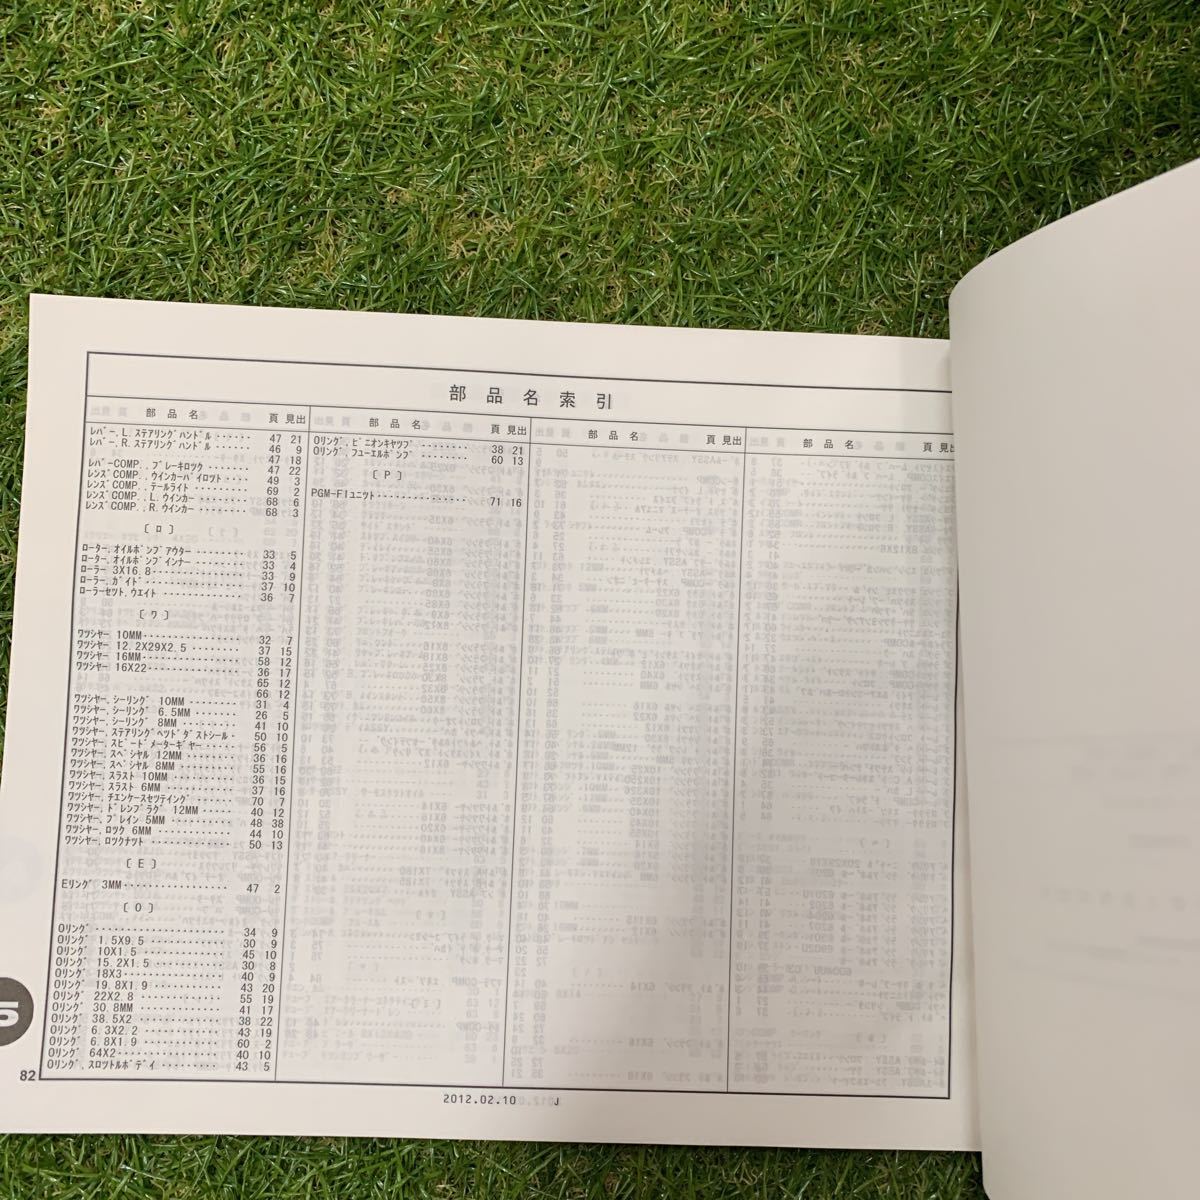 部品名索引
部品名 頁 見出
ﾚﾊﾞｰ,L.ｽﾃｱﾘﾝｸﾞﾊﾝﾄﾞﾙ ······ 47 21
ﾚﾊﾞｰ,R.ｽﾃｱﾘﾝｸﾞﾊﾝﾄﾞﾙ ······ 46 9
47 18
ﾚﾊﾞｰCOMP.,ﾌﾞﾚｰｷﾛﾂｸ ······· 47 22
ﾚﾝｽﾞCOMP.,ｳｲﾝｶｰﾊﾟｲﾛﾂﾄ ···· 49 3
ﾚﾝｽﾞCOMP.,ﾃｰﾙﾗｲﾄ ········· 69 2
ﾚﾝｽﾞCOMP.,L.ｳｲﾝｶｰ ········ 68 6
ﾚﾝｽﾞCOMP.,R.ｳｲﾝｶｰ ········ 68 3
[ ﾛ ]
ﾛｰﾀｰ,ｵｲﾙﾎﾟﾝﾌﾟｱｳﾀｰ ········ 33 5
ﾛｰﾀｰ,ｵｲﾙﾎﾟﾝﾌﾟｲﾝﾅｰ ········ 33 4
ﾛｰﾗｰ 3X16.8 ·············· 33 9
ﾛｰﾗｰ,ｶﾞｲﾄﾞ ··············· 37 10
ﾛｰﾗｰｾﾂﾄ,ｳｴｲﾄ ············· 36 7
[ ﾜ ]
ﾜﾂｼﾔｰ 10MM ··············· 32 7
ﾜﾂｼﾔｰ 12.2X29X2.5 ········ 37 15
ﾜﾂｼﾔｰ 16MM ··············· 58 12
ﾜﾂｼﾔｰ 16X22 ·············· 36 17
65 12
66 12
ﾜﾂｼﾔｰ,ｼｰﾘﾝｸﾞ 10MM ········ 31 4
ﾜﾂｼﾔｰ,ｼｰﾘﾝｸﾞ 6.5MM ······· 26 5
ﾜﾂｼﾔｰ,ｼｰﾘﾝｸﾞ 8MM ········· 41 10
ﾜﾂｼﾔｰ,ｽﾃｱﾘﾝｸﾞﾍﾂﾄﾞﾀﾞｽﾄｼｰﾙ · 50 10
ﾜﾂｼﾔｰ,ｽﾋﾟｰﾄﾞﾒｰﾀｰｷﾞﾔｰ ····· 56 5
ﾜﾂｼﾔｰ,ｽﾍﾟｼﾔﾙ 12MM ········ 36 16
ﾜﾂｼﾔｰ,ｽﾍﾟｼﾔﾙ 8MM ········· 55 16
ﾜﾂｼﾔｰ,ｽﾗｽﾄ 10MM ·········· 36 15
ﾜﾂｼﾔｰ,ｽﾗｽﾄ 6MM ··········· 37 16
ﾜﾂｼﾔｰ,ﾁｴﾝｹｰｽｾﾂﾃｲﾝｸﾞ ······ 70 7
ﾜﾂｼﾔｰ,ﾄﾞﾚﾝﾌﾟﾗｸﾞ 12MM ····· 40 12
ﾜﾂｼﾔｰ,ﾌﾟﾚｲﾝ 5MM ·········· 48 38
ﾜﾂｼﾔｰ,ﾛﾂｸ 6MM ············ 44 10
ﾜﾂｼﾔｰ,ﾛﾂｸﾅﾂﾄ ············· 50 13
[ E ]
Eﾘﾝｸﾞ 3MM ················ 47 2
[ O ]
Oﾘﾝｸﾞ ···················· 34 9
Oﾘﾝｸﾞ 1.5X9.5 ············ 30 9
Oﾘﾝｸﾞ 10X1.5 ············· 45 10
Oﾘﾝｸﾞ 15.2X1.5 ··········· 30 8
Oﾘﾝｸﾞ 18X3 ··············· 40 9
Oﾘﾝｸﾞ 19.8X1.9 ··········· 43 20
Oﾘﾝｸﾞ 22X2.8 ············· 55 19
Oﾘﾝｸﾞ 30.8MM ············· 41 17
Oﾘﾝｸﾞ 38.5X2 ············· 38 22
Oﾘﾝｸﾞ 6.3X2.2 ············ 43 19
Oﾘﾝｸﾞ 6.8X1.9 ············ 60 2
Oﾘﾝｸﾞ 64X2 ··············· 40 10
Oﾘﾝｸﾞ,ｽﾛﾂﾄﾙﾎﾞﾃﾞｲ ········· 43 5
部品名 頁 見出
Oﾘﾝｸﾞ,ﾋﾟﾆｵﾝｷﾔﾂﾌﾟ ········· 38 21
Oﾘﾝｸﾞ,ﾌﾕｰｴﾙﾎﾟﾝﾌﾟ ········· 60 13
[ P ]
PGM-FIﾕﾆﾂﾄ ··············· 71 16
部品名 頁 見出
部品名 頁 見出
5
82
2012.02.10 J